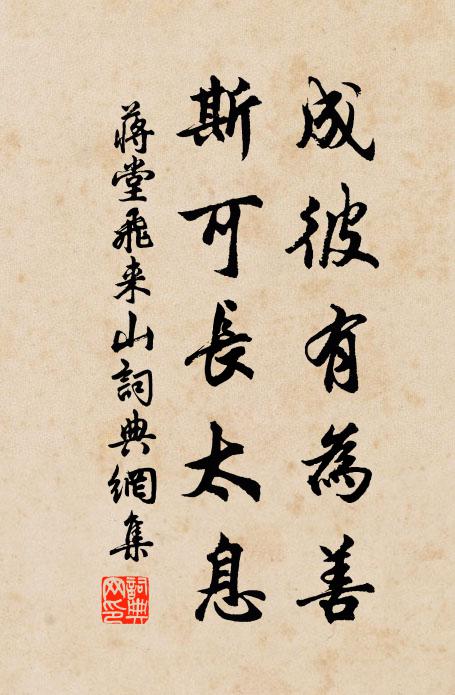 成彼有為善
斯可長太息
蔣堂飛来山詞典網集
詞典網印